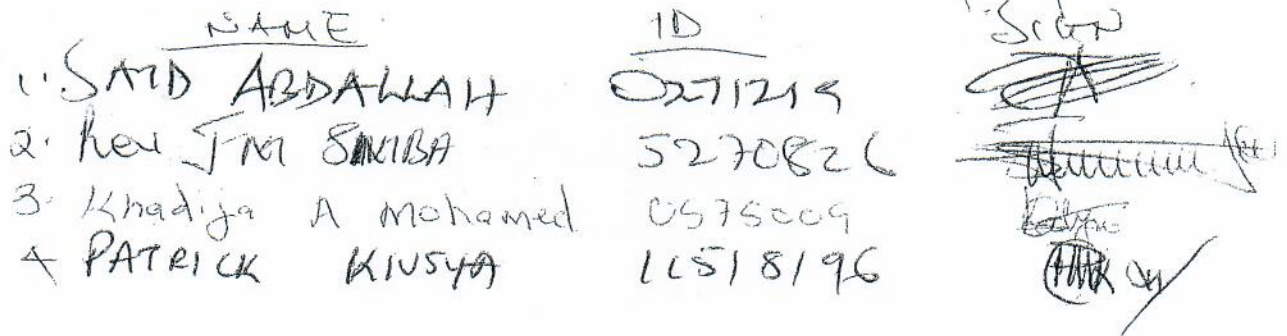 NAME ID SIGN
1. SAID ABDALLAH 0271219
2. Rev JM SIMBA 5270826
3. Khadija A Mohamed 0575009
4 PATRICK KIVSYA 11518196